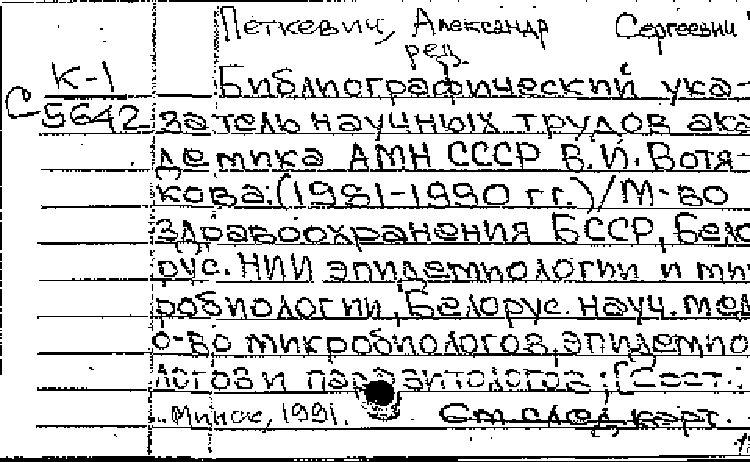 Петкевич, Александр Сергеевич
ред.
К-1
С 5642
Библиографический ука-
затель научных трудов ака
демика АМН СССР В.И. Вотя-
кова. (1981-1990 гг.) / М-во
здравоохранения БССР, Бело
рус. НИИ эпидемиологии и ми
робиологии, Белорус. науч. мед
о-во микробиологов, эпидемио
логов и паразитологов; [Сост.:
Минск, 1991. См след карт.